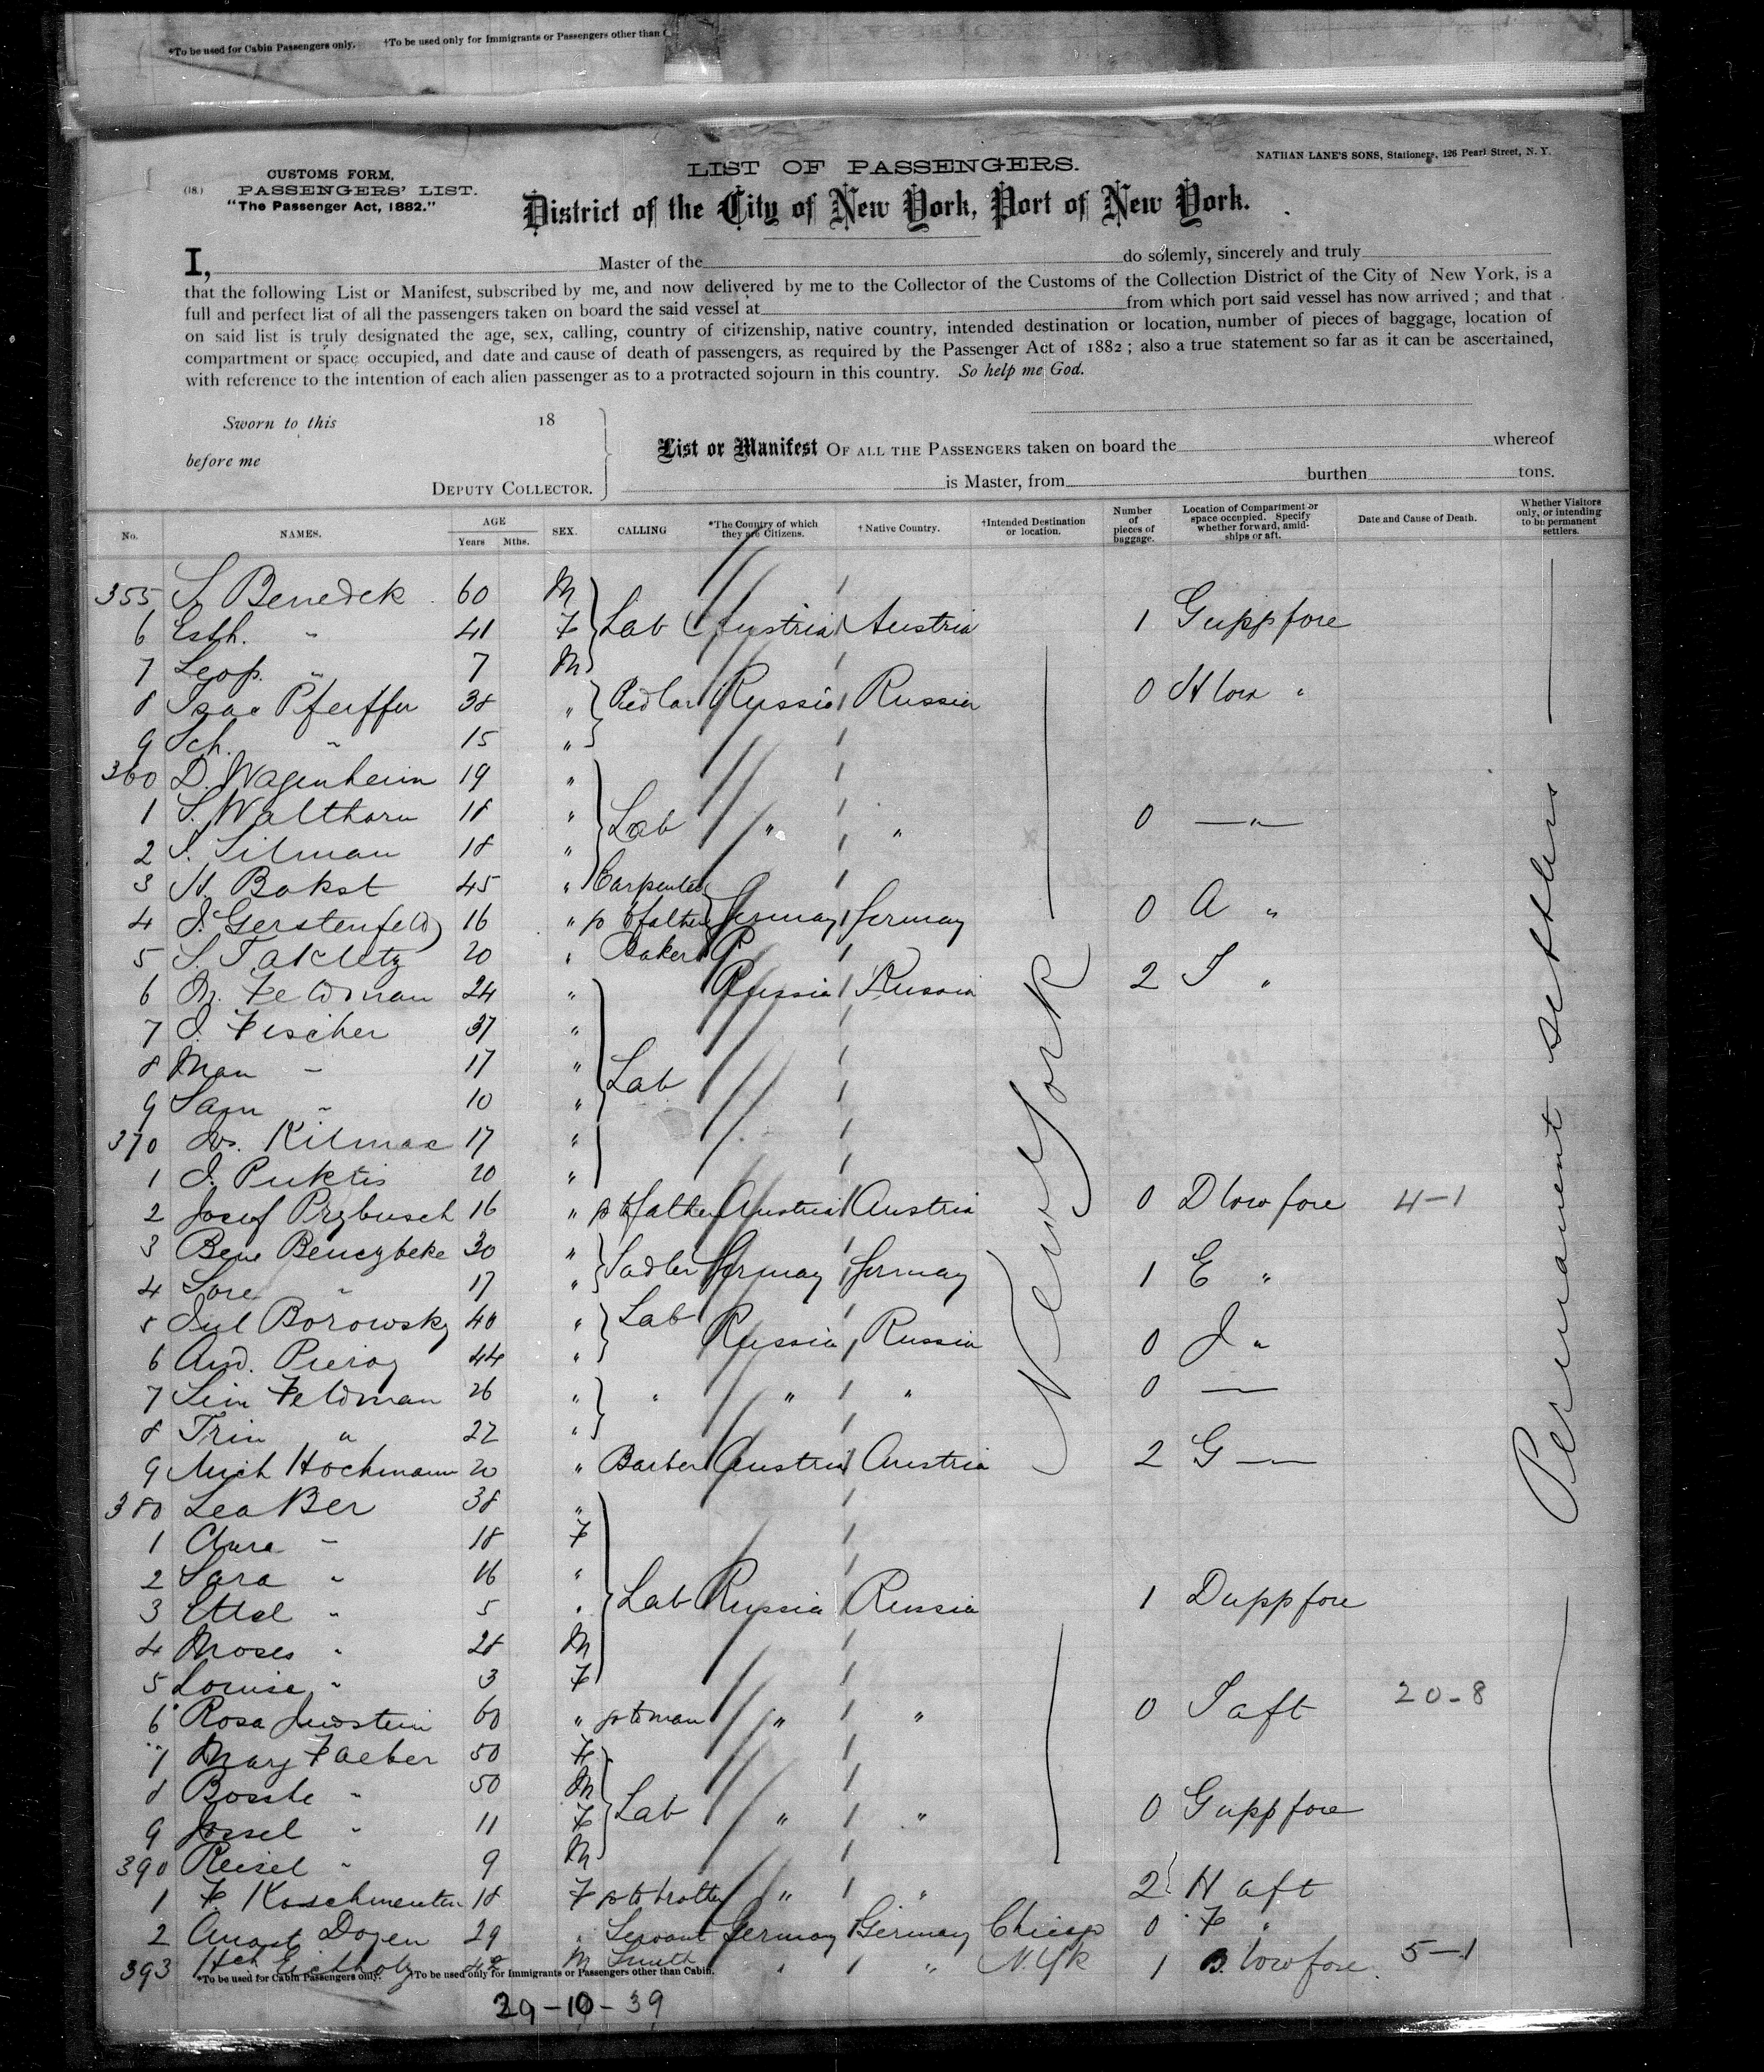 *To be used for Cabin Passengers only. †To be used only for Immigrants or Passengers other than C
CUSTOMS FORM.
(18.) PASSENGERS' LIST.
"The Passenger Act, 1882."
LIST OF PASSENGERS.
NATHAN LANE'S SONS, Stationers, 126 Pearl Street, N. Y.
District of the City of New York, Port of New York.
I, Master of the do solemly, sincerely and truly
that the following List or Manifest, subscribed by me, and now delivered by me to the Collector of the Customs of the Collection District of the City of New York, is a
full and perfect list of all the passengers taken on board the said vessel at from which port said vessel has now arrived ; and that
on said list is truly designated the age, sex, calling, country of citizenship, native country, intended destination or location, number of pieces of baggage, location of
compartment or space occupied, and date and cause of death of passengers, as required by the Passenger Act of 1882 ; also a true statement so far as it can be ascertained,
with reference to the intention of each alien passenger as to a protracted sojourn in this country. So help me God.
Sworn to this 18
before me
DEPUTY COLLECTOR.
List or Manifest OF ALL THE PASSENGERS taken on board the whereof
is Master, from burthen tons.
No. NAMES. AGE Years Mths. SEX. CALLING *The Country of which they are Citizens. † Native Country. †Intended Destination or location. Number of pieces of baggage. Location of Compartment or space occupied. Specify whether forward, amid-ships or aft. Date and Cause of Death. Whether Visitors only, or intending to be permanent settlers.
355 S. Benedek 60 M
6 Esth. " 41 F Lab Austria Austria 1 G upp fore
7 Leop. " 7 M
8 Isac Pfeiffer 38 " Pedlar Russia Russia 0 H low "
9 Sch. " 15 "
360 D. Wagenheim 19 "
1 S. Walthorn 18 " Lab " " 0 — " —
2 S. Silman 18 "
3 H. Bakst 45 " Carpenter
4 J. Gerstenfeld 16 " p to father Germay Germay 0 A "
5 S. 20 " Baker
6 M. Feldman 24 " Russia Russia 2 I "
7 J. Fischer 37 "
8 Man — 17 " Lab
9 Sam " 10 "
370 Kilmac 17 "
1 J. Puktis 20 "
2 Josef Przybusch 16 " p to father Austria Austria 0 D low fore 4-1
3 Benczbeke 30 " Sadler Germay Germay 1 E "
4 Lore " 17 "
5 Jul Borowsky 40 " Lab Russia Russia 0 J "
6 And. 44 "
7 Sim Feldman 26 " " " " 0 —
8 Trin " 22 "
9 Mich Hochmann 20 " Barber Austria Austria 2 G —
380 Lea Ber 38 "
1 Clara — 18 F
2 Sara " 16 "
3 Ettel " 5 " Lab Russia Russia 1 D upp fore
4 Moses " 28 M
5 Louise " 3 F
6 Rosa 60 " p to man " " 0 I aft 20-8
7 Mary Faeber 50 F
8 " 50 M
9 Jossel " 11 F Lab " " 0 G upp fore
390 Reisel " 9 M
1 F. 18 F p to brother " " 2 H aft
2 August Dozen 29 " Servant Germay Germay Chicago 0 F "
393 Hch Eichholz 42 M Smith " " N.Yk 1 B. low fore 5-1
New York
Permanent settlers
*To be used for Cabin Passengers only. †To be used only for Immigrants or Passengers other than Cabin.
29-10-39